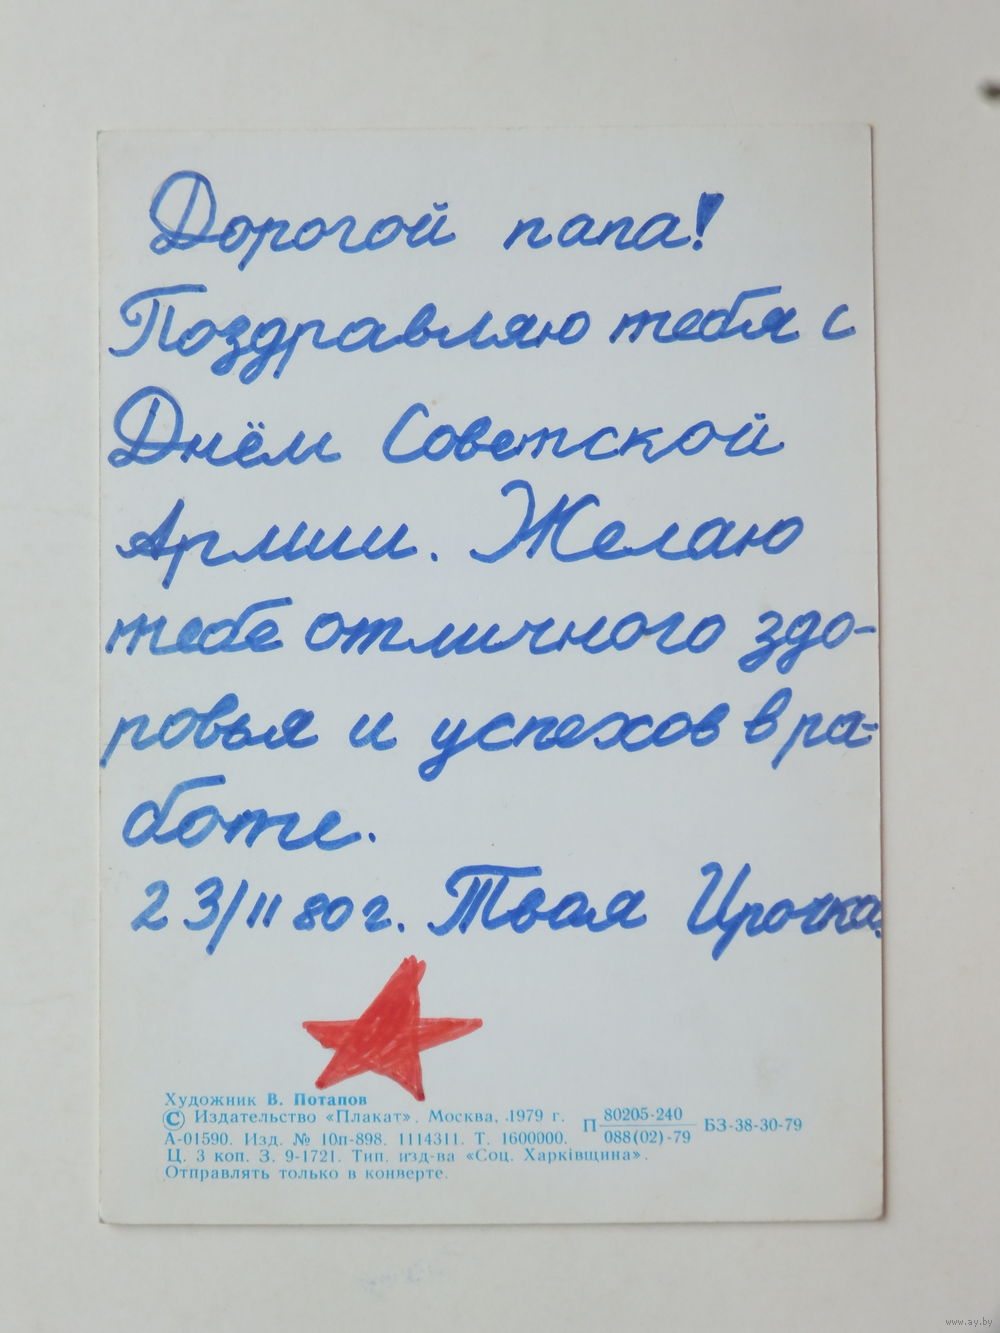 Дорогой папа!
Поздравляю тебя с
Днём Советской
Армии. Желаю
тебе отличного здо-
ровья и успехов в ра-
боте.
23/II 80 г. Твоя Ирочка.
Художник В. Потапов
© Издательство «Плакат». Москва, 1979 г.
А-01590. Изд. № 10п-898. 1114311. Т. 1600000.
Ц. 3 коп. З. 9-1721. Тип. изд-ва «Соц. Харкiвщина».
Отправлять только в конверте.
П 80205-240
088(02)-79 БЗ-38-30-79
www.ay.by